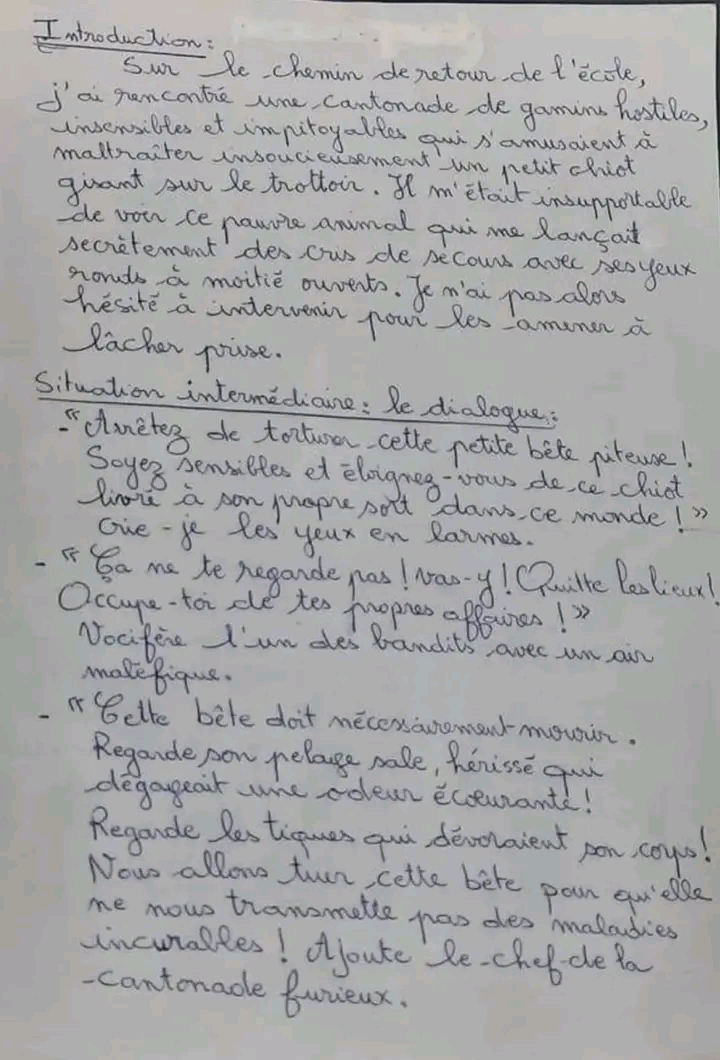 Introduction :
Sur le chemin de retour de l'école,
j'ai rencontré une cantonade de gamins hostiles,
insensibles et impitoyables qui s'amusaient à
maltraîter insoucieusement un petit chiot
gisant sur le trottoir. Il m'était insupportable
de voir ce pauvre animal qui me lançait
secrètement des cris de secours avec ses yeux
ronds à moitié ouverts. Je n'ai pas alors
hésité à intervenir pour les amener à
lâcher prise.
Situation intermédiaire : le dialogue :
- "Arrêtez de torturer cette petite bête piteuse !
Soyez sensibles et éloignez-vous de ce chiot
livré à son propre sort dans ce monde ! »
Crie-je les yeux en larmes.
- « Ça ne te regarde pas ! Vas-y ! Quitte les lieux !
Occupe-toi de tes propres affaires ! »
Vocifère l'un des bandits avec un air
maléfique.
- "Cette bête doit nécessairement mourir.
Regarde son pelage sale, hérissé qui
dégageait une odeur écœurante !
Regarde les tiques qui dévoraient son corps !
Nous allons tuer cette bête pour qu'elle
ne nous transmette pas des maladies
incurables ! Ajoute le chef de la
cantonade furieux.